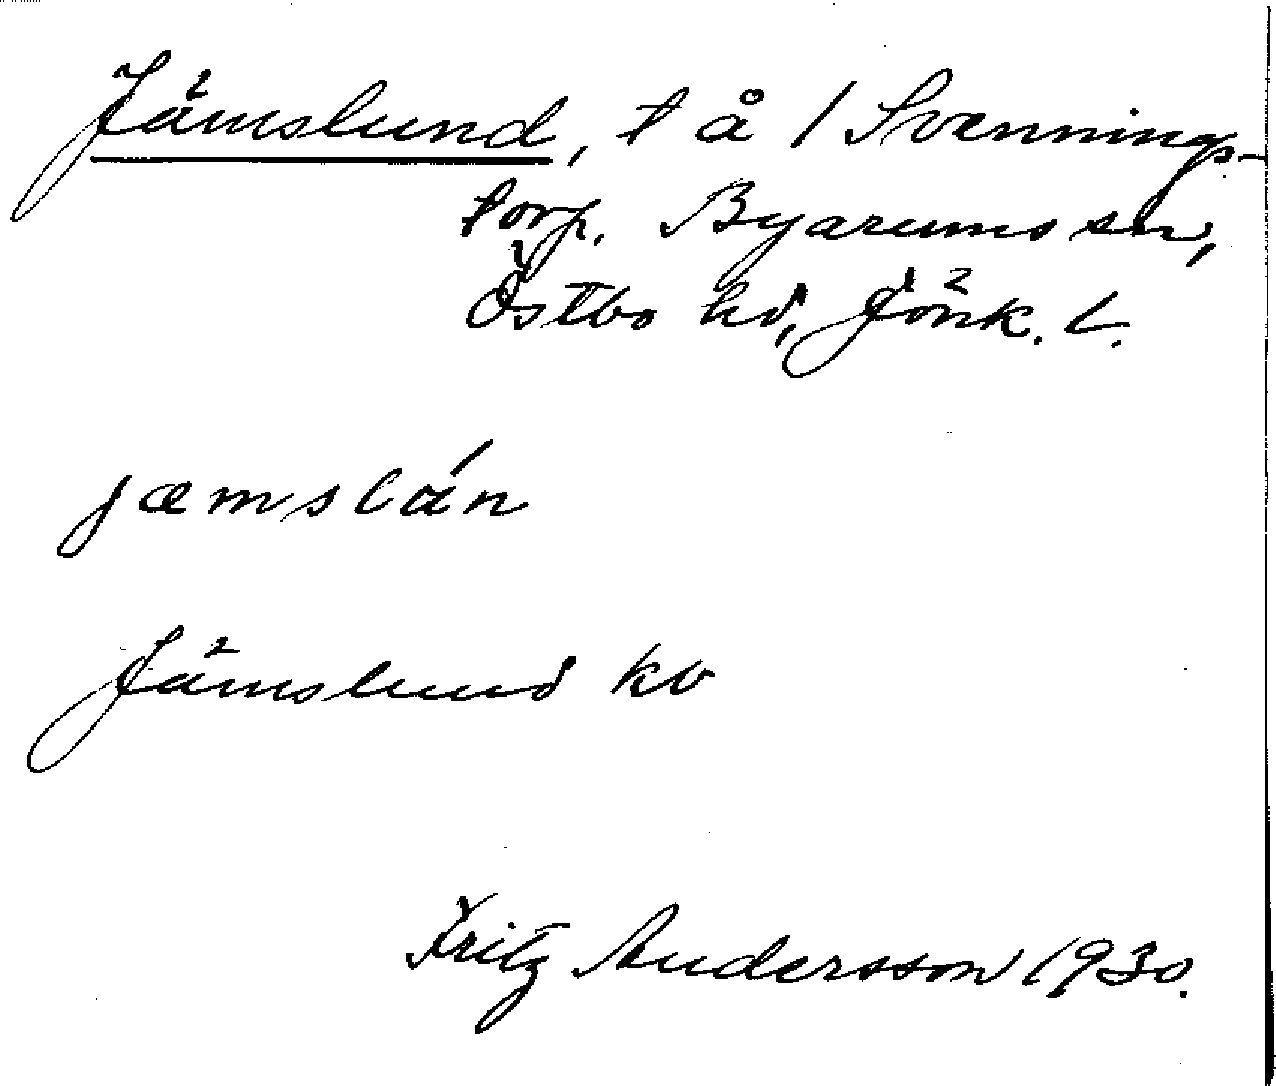 Jämslund, t å / Svennings-
torp, Byarums sn,
Östbo hd, Jönk. l.
jæmslán
Jämslund kb
Fritz Andersson 1930.